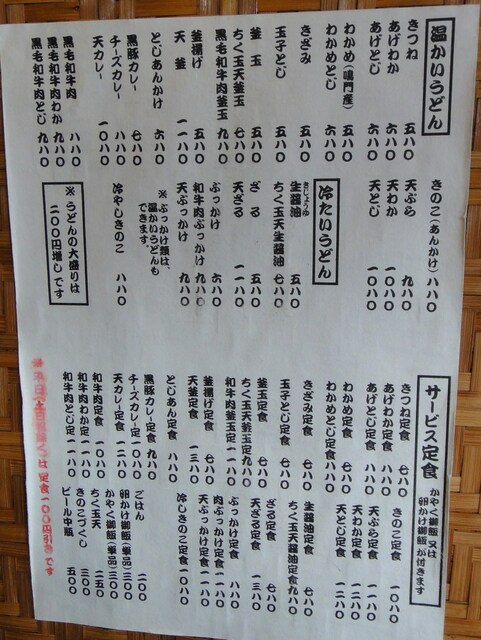 温かいうどん
きつね 五八〇
あげわか 六八〇
あげとじ 六八〇
わかめ(鳴門産) 五八〇
わかめとじ 六八〇
きざみ 五八〇
玉子とじ 五八〇
釜玉 五八〇
ちく玉天釜玉 七八〇
黒毛和牛肉釜玉 九八〇
釜揚げ 五八〇
天釜 一一八〇
とじあんかけ 六八〇
黒豚カレー 七八〇
チーズカレー 八八〇
天カレー 一〇八〇
黒毛和牛肉 八八〇
黒毛和牛肉わか 九八〇
黒毛和牛肉とじ 九八〇
きのこ(あんかけ) 八八〇
天ぷら 九八〇
天わか 一〇八〇
天とじ 一〇八〇
冷たいうどん
生醬油 五八〇
きじょうゆ
ちく玉天生醬油 七八〇
ざる 五八〇
天ざる 一一八〇
ぶっかけ 六八〇
和牛肉ぶっかけ 九八〇
天ぶっかけ 九八〇
※ぶっかけ類は、
温かいうどんも
できます。
冷やしきのこ 八八〇
※うどんの大盛りは
二〇〇円増しです
サービス定食
かやく御飯 又は
卵かけ御飯が付きます
きつね定食 七八〇
あげわか定食 八八〇
あげとじ定食 八八〇
わかめ定食 七八〇
わかめとじ定食 八八〇
きざみ定食 七八〇
玉子とじ定食 七八〇
釜玉定食 七八〇
ちく玉天釜玉定 九八〇
和牛肉釜玉定 一一八〇
釜揚げ定食 七八〇
天釜定食 一三八〇
とじあん定食 八八〇
黒豚カレー定食 九八〇
チーズカレー定 一〇八〇
天カレー定食 一二八〇
和牛肉定食 一〇八〇
和牛肉わか定 一一八〇
和牛肉とじ定 一一八〇
きのこ定食 一〇八〇
天ぷら定食 一一八〇
天わか定食 一二八〇
天とじ定食 一二八〇
生醬油定食 七八〇
ちく玉天醬油定食 九八〇
ざる定食 七八〇
天ざる定食 一三八〇
ぶっかけ定食 八八〇
肉ぶっかけ定食 一一八〇
天ぶっかけ定食 一一八〇
冷しきのこ定食 一〇八〇
ごはん 二〇〇
卵かけ御飯(単品) 三〇〇
かやく御飯(単品) 三〇〇
ちく玉天 二〇〇
きのこづくし 三〇〇
ビール中瓶 五〇〇
定食一〇〇円引きです